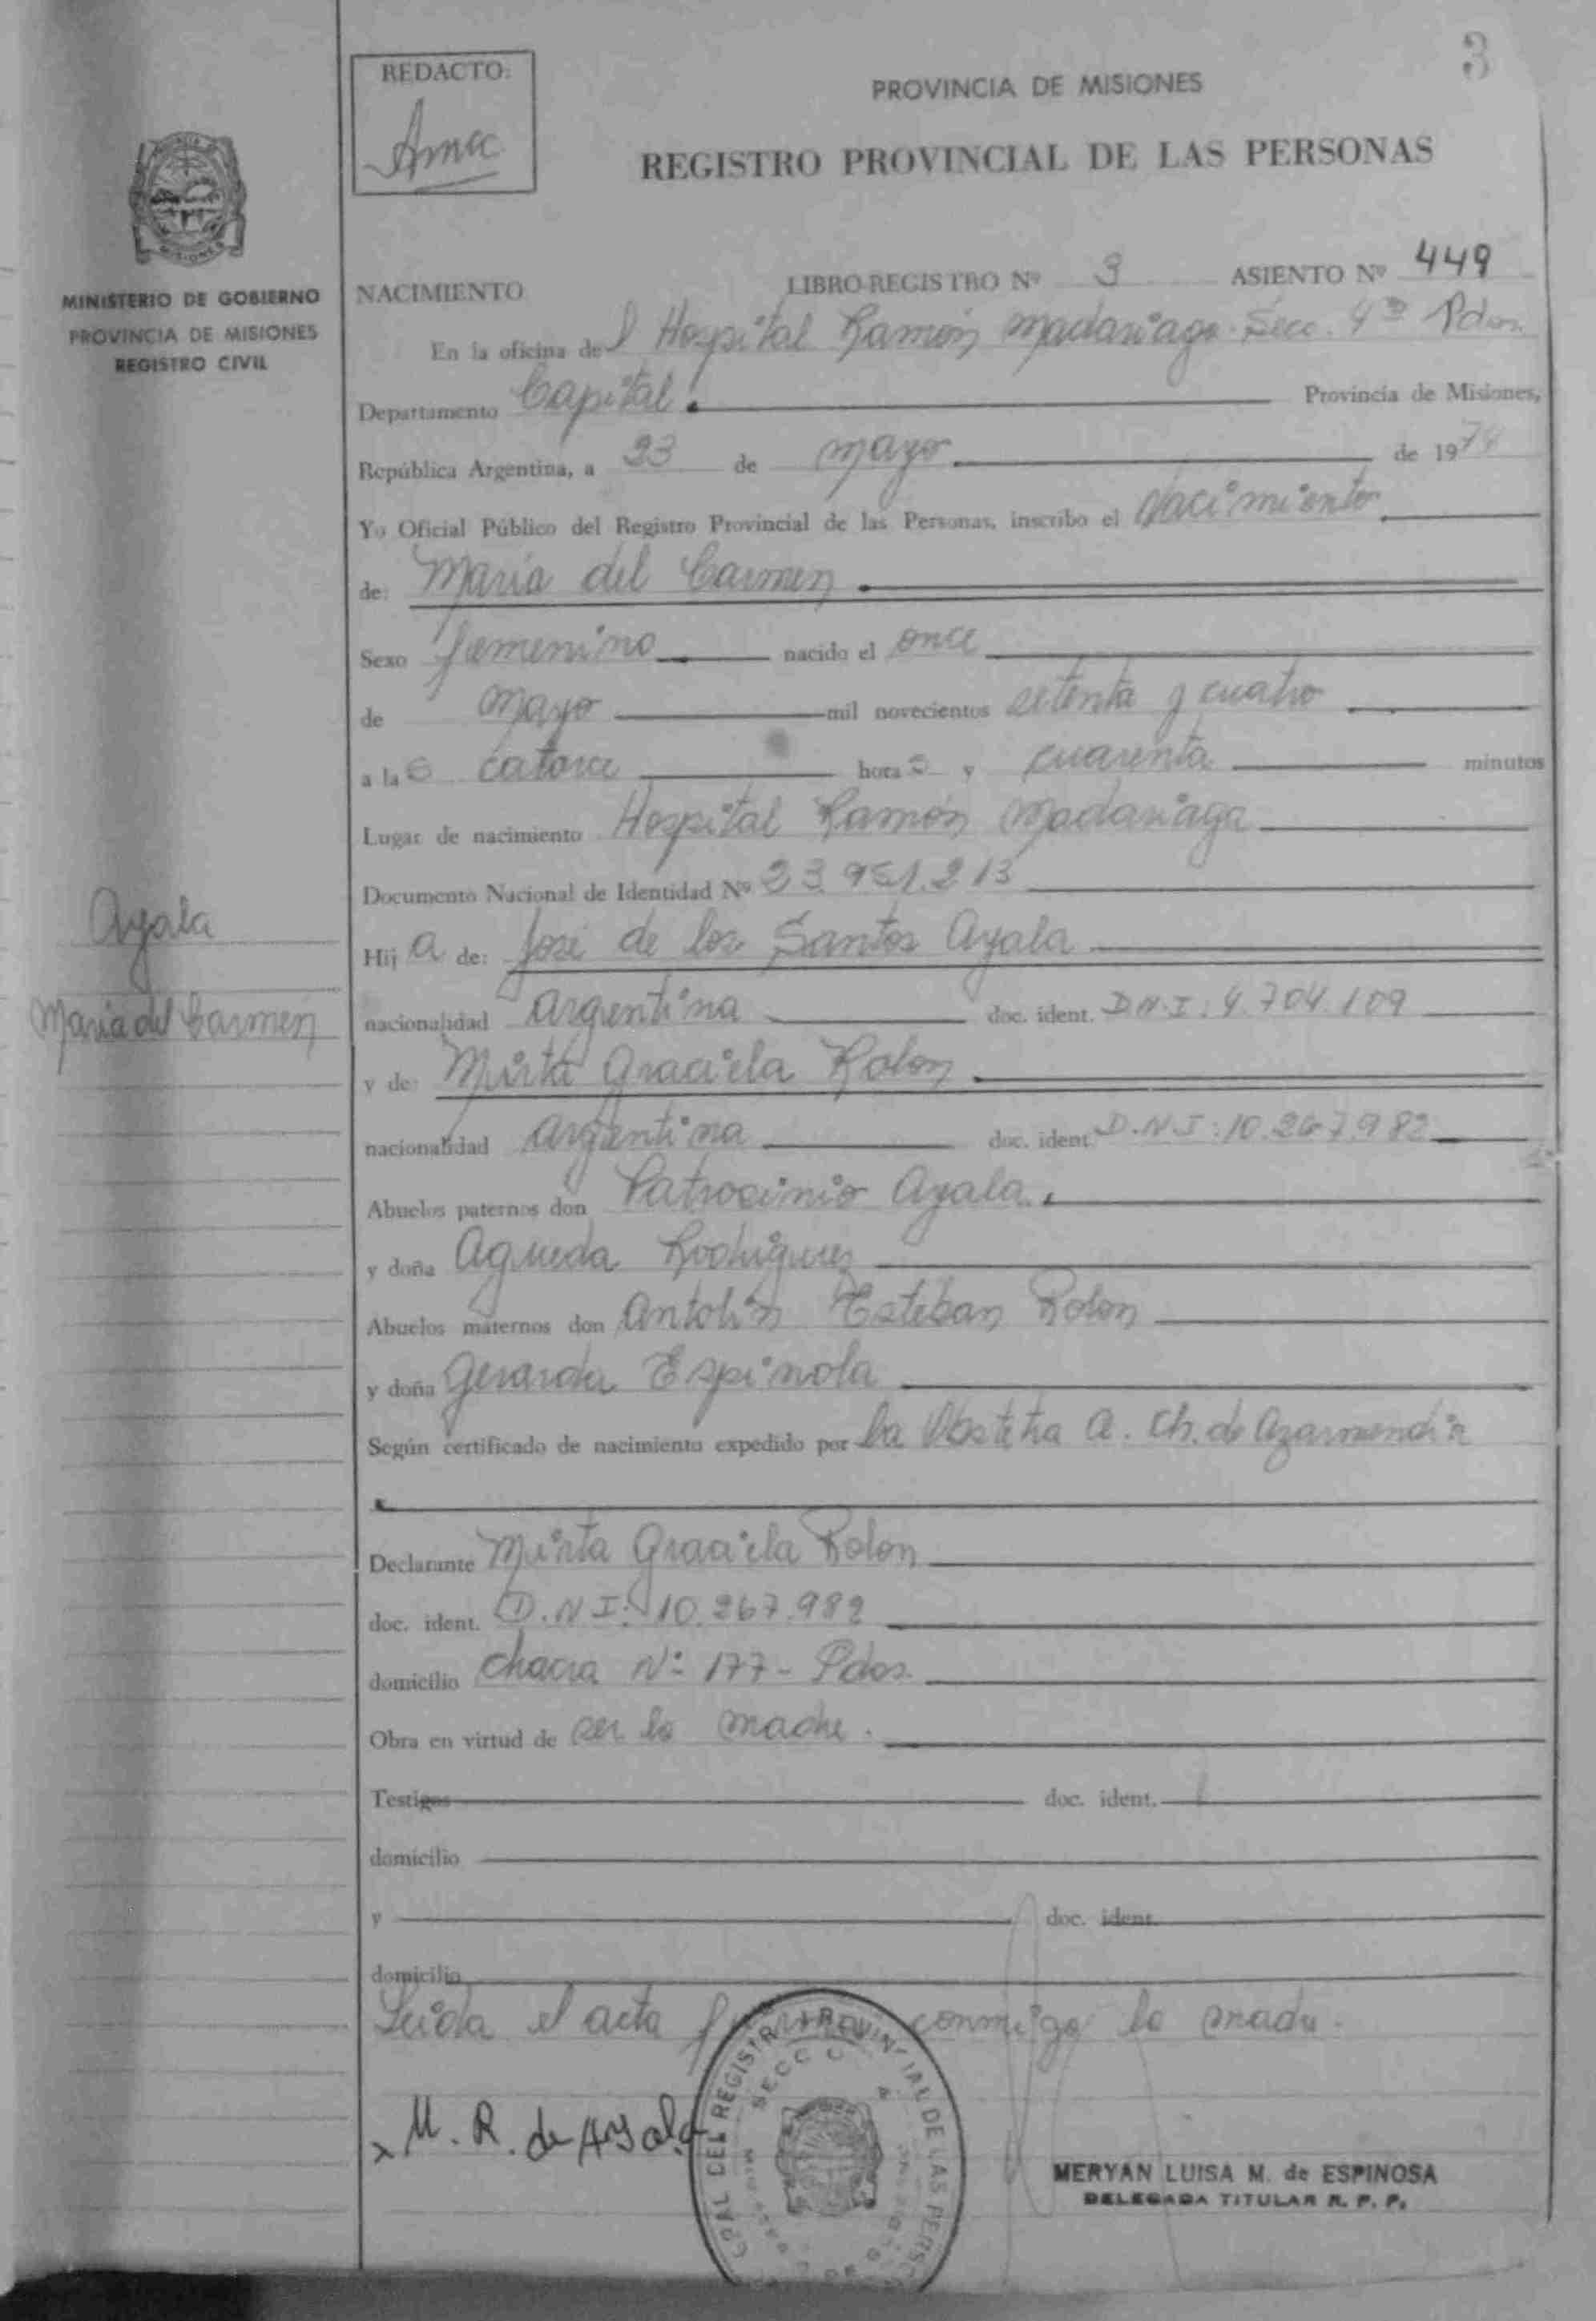 3
REDACTO:
PROVINCIA DE MISIONES
REGISTRO PROVINCIAL DE LAS PERSONAS
MINISTERIO DE GOBIERNO
PROVINCIA DE MISIONES
REGISTRO CIVIL
NACIMIENTO LIBRO-REGISTRO Nº 3 ASIENTO Nº 449
En la oficina del Hospital Ramón Madariaga. Secc. 4ª Pdas.
Departamento Capital. Provincia de Misiones,
República Argentina, a 23 de mayo de 1974
Yo Oficial Público del Registro Provincial de las Personas, inscribo el Nacimiento
de: María del Carmen
Sexo femenino nacido el once
de mayo mil novecientos setenta y cuatro
a las catorce horas y cuarenta minutos
Lugar de nacimiento Hospital Ramón Madariaga
Documento Nacional de Identidad Nº 23.951.213
Ayala
María del Carmen
Hija de: José de los Santos Ayala
nacionalidad argentina doc. ident. D.N.I: 4.704.109
y de: Mirta Graciela Rolon
nacionalidad argentina doc. ident. D.N.I: 10.267.982
Abuelos paternos don Patrocinio Ayala.
y doña Agueda Rodriguez
Abuelos maternos don Antolín Esteban Rolon
y doña Gerarda Espinola
Según certificado de nacimiento expedido por la Obstetra A. Ch. de Azarmendia
Declarante Mirta Graciela Rolon
doc. ident. D.N.I: 10.267.982
domicilio chacra Nº 177 - Pdas.
Obra en virtud de ser la madre.
Testigos doc. ident.
domicilio
y doc. ident.
domicilio
Leida el acta firma conmigo la madre.
M. R. de Ayala
MERYAN LUISA M. de ESPINOSA
DELEGADA TITULAR R. P. P.